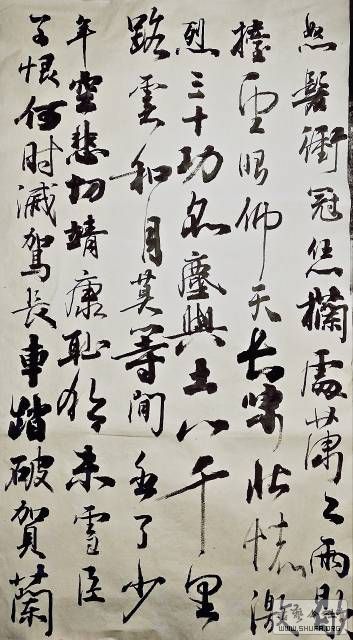 怒髮衝冠凭欄處蕭々雨歇
擡望眼仰天長嘯壯懷激
烈三十功名塵與土八千里
路雲和月莫等閒白了少
年空悲切靖康恥猶未雪臣
子恨何時滅駕長車踏破賀蘭
WWW.SHUFA.ORG